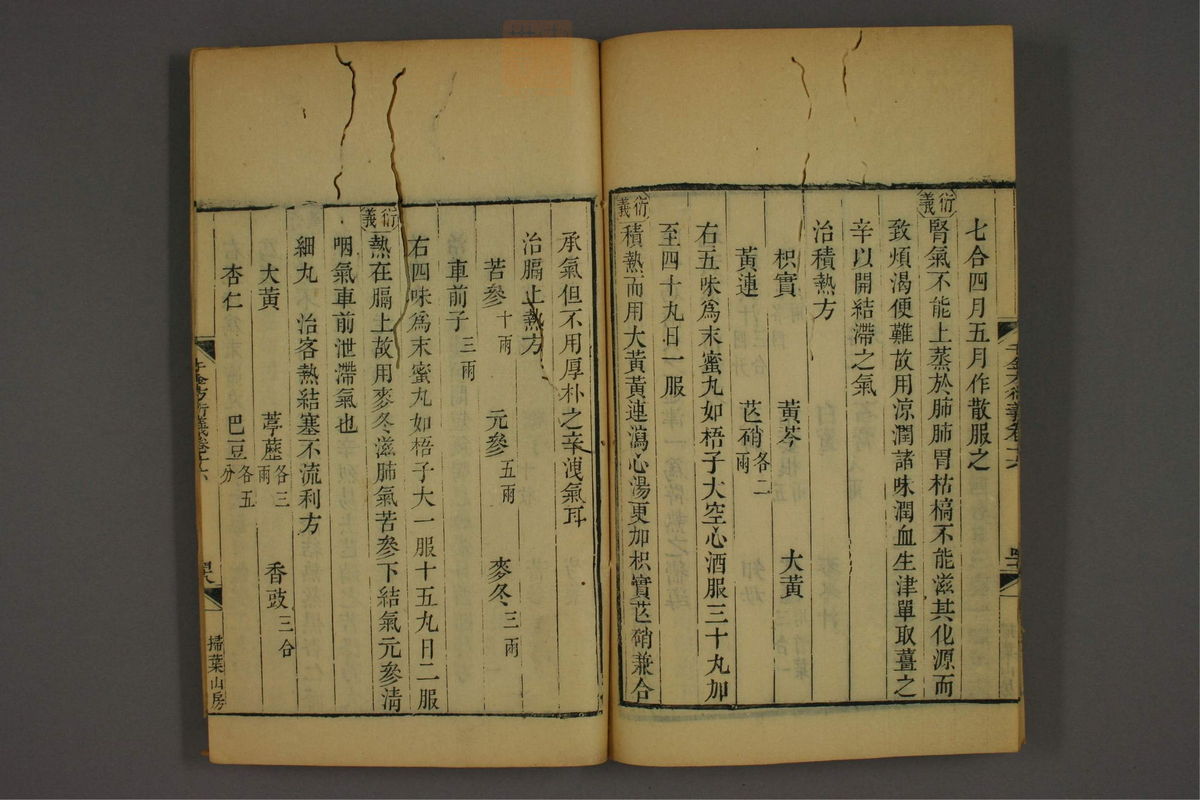 七合四月五月作散服之
衍義
腎氣不能上蒸於肺肺胃枯槁不能滋其化源而
致煩渴便難故用涼潤諸味潤血生津單取薑之
辛以開結滯之氣
治積熱方
枳實 黃芩 大黃
黃連 芒硝各二兩
右五味爲末蜜丸如梧子大空心酒服三十丸加
至四十九日一服
衍義
積熱而用大黃黃連瀉心湯更加枳實芒硝兼合
承氣但不用厚朴之辛洩氣耳
治膈上熱方
苦參十兩 元參五兩 麥冬三兩
車前子三兩
右四味爲末蜜丸如梧子大一服十五丸日二服
衍義
熱在膈上故用麥冬滋肺氣苦參下結氣元參清
咽氣車前泄滯氣也
細丸 治客熱結塞不流利方
大黃 葶藶各三兩 香豉三合
杏仁 巴豆各五分
千金方衍義卷十六
掃葉山房